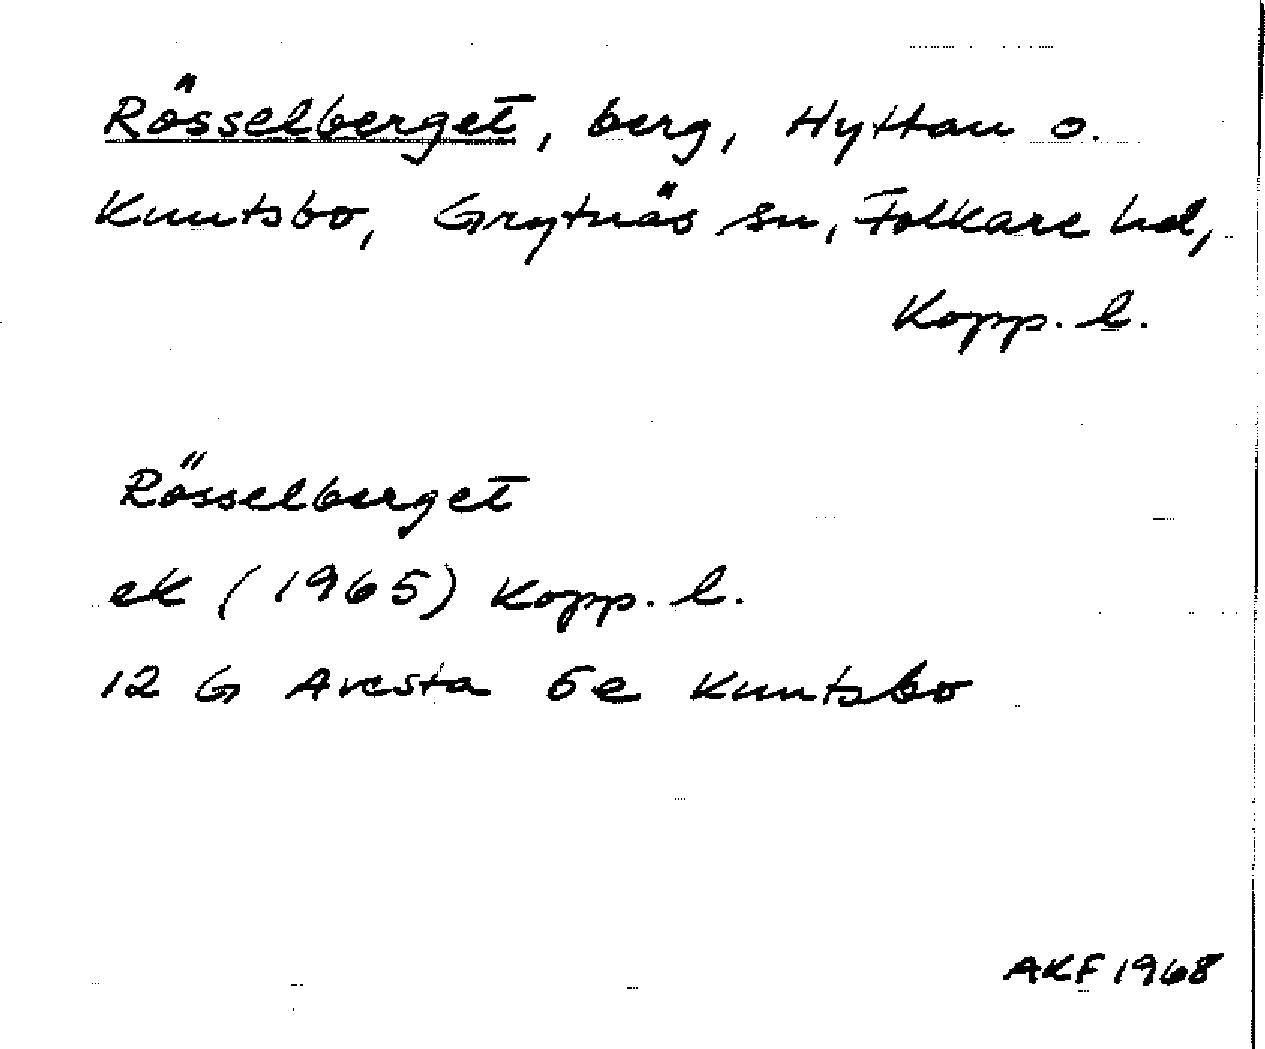 Rösselberget, berg, Hyttan o.
Knutsbo, Grytnäs sn, Folkare hd,
Kopp. l.
Rösselberget
ek (1965) Kopp. l.
12 G Avesta 5e Knutsbo
AKF 1968